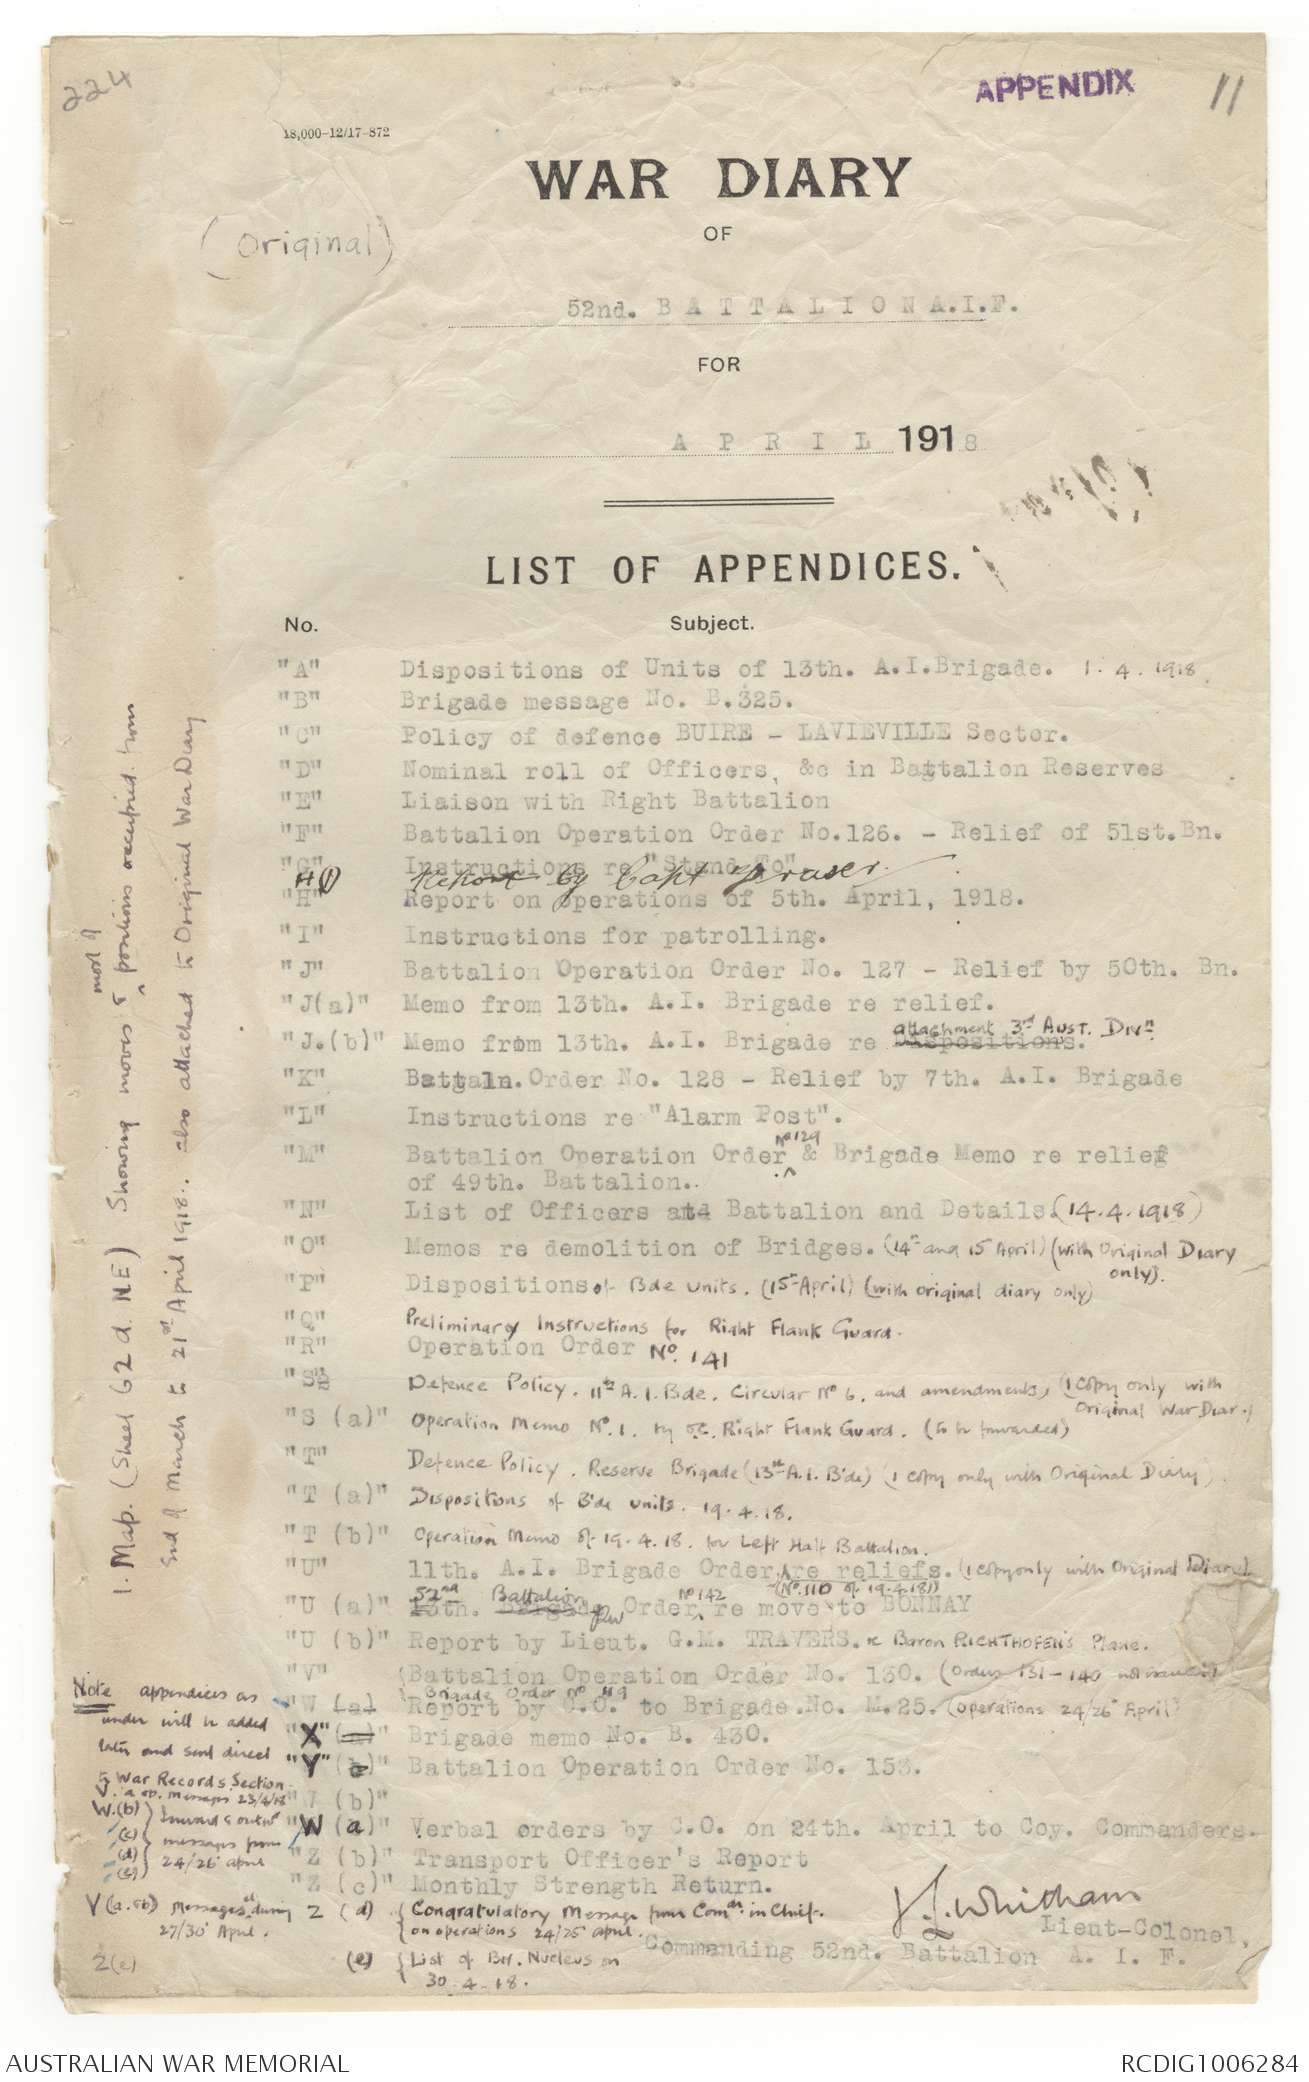 224
APPENDIX
11
18,000-12/17-872
WAR DIARY
(Original)
OF
52nd. BATTALION A.I.F.
FOR
APRIL 1918
LIST OF APPENDICES.
No. Subject.
"A" Dispositions of Units of 13th. A.I.Brigade. 1.4.1918.
"B" Brigade message No. B.325.
"C" Policy of defence BUIRE - LAVIEVILLE Sector.
"D" Nominal roll of Officers, &c in Battalion Reserves
"E" Liaison with Right Battalion
"F" Battalion Operation Order No.126. - Relief of 51st.Bn.
"G" Instructions re "Stand To"
H(1) Report by Capt Fraser.
"H" Report on operations of 5th. April, 1918.
"I" Instructions for patrolling.
"J" Battalion Operation Order No. 127 - Relief by 50th. Bn.
"J(a)" Memo from 13th. A.I. Brigade re relief.
attachment 3rd Aust. Divn.
"J.(b)" Memo from 13th. A.I. Brigade re Dispositions.
"K" Order No. 128 - Relief by 7th. A.I. Brigade
"L" Instructions re "Alarm Post".
No 129
"M" Battalion Operation Order & Brigade Memo re relief
of 49th. Battalion.
"N" List of Officers Battalion and Details.(14.4.1918)
"O" Memos re demolition of Bridges. (14th and 15 April) (with Original Diary
only).
"P" Dispositions of Bde units. (15th April) (with original diary only)
"Q" Preliminary Instructions for Right Flank Guard.
"R" Operation Order No. 141
"S" Defence Policy. 11th A.I.Bde. Circular No 6. and amendments, (1 copy only with
Original War Diary)
"S (a)" Operation Memo No.1. by OC. Right Flank Guard. (to be forwarded)
"T" Defence Policy. Reserve Brigade (13th A.I. Bde) (1 copy only with Original Diary).
"T (a)" Dispositions of Bde units. 19.4.18.
"T (b)" Operation Memo of 19.4.18. for Left Half Battalion.
"U" 11th. A.I. Brigade Order re reliefs. (1 copy only with Original Diary)
52nd Battalion No 142 (No.110 of 19.4.18)
"U (a)" 13th. Brigade Order re move to BONNAY
"U (b)" Report by Lieut. G.M. TRAVERS. re Baron RICHTHOFEN'S Plane.
"V" Battalion Operation Order No. 130. (Orders 131-140 not issued)
Brigade Order No 119
"W (a)" Report by C.O. to Brigade.No. M.25. (operations 24/26 April)
"X" Brigade memo No. B. 430.
"Y" (b) Battalion Operation Order No. 153.
(b)"
"W (a)" Verbal orders by C.O. on 24th. April to Coy. Commanders.
"Z (b)" Transport Officer's Report
"Z (c)" Monthly Strength Return.
Z (d) Congratulatory Message from Comdr. in Chief.
on operations 24/25 April.
(e) List of Bn. Nucleus on
30.4.18.
Whitham
Lieut-Colonel,
Commanding 52nd. Battalion A. I. F.
Note appendices as
under will be added
later and sent direct
to War Records Section
V. a op. messages 23/4/18
W.(b)
(c)
(d)
(e)
Inward & outwd
messages from
24/26 April
Y (a.&b) Messages during
27/30 April.
Z(e)
1. Map. (Sheet 62d. NE) Showing moves & most of positions occupied from
end of March to 21st April 1918. also attached to Original War Diary
AUSTRALIAN WAR MEMORIAL
RCDIG1006284